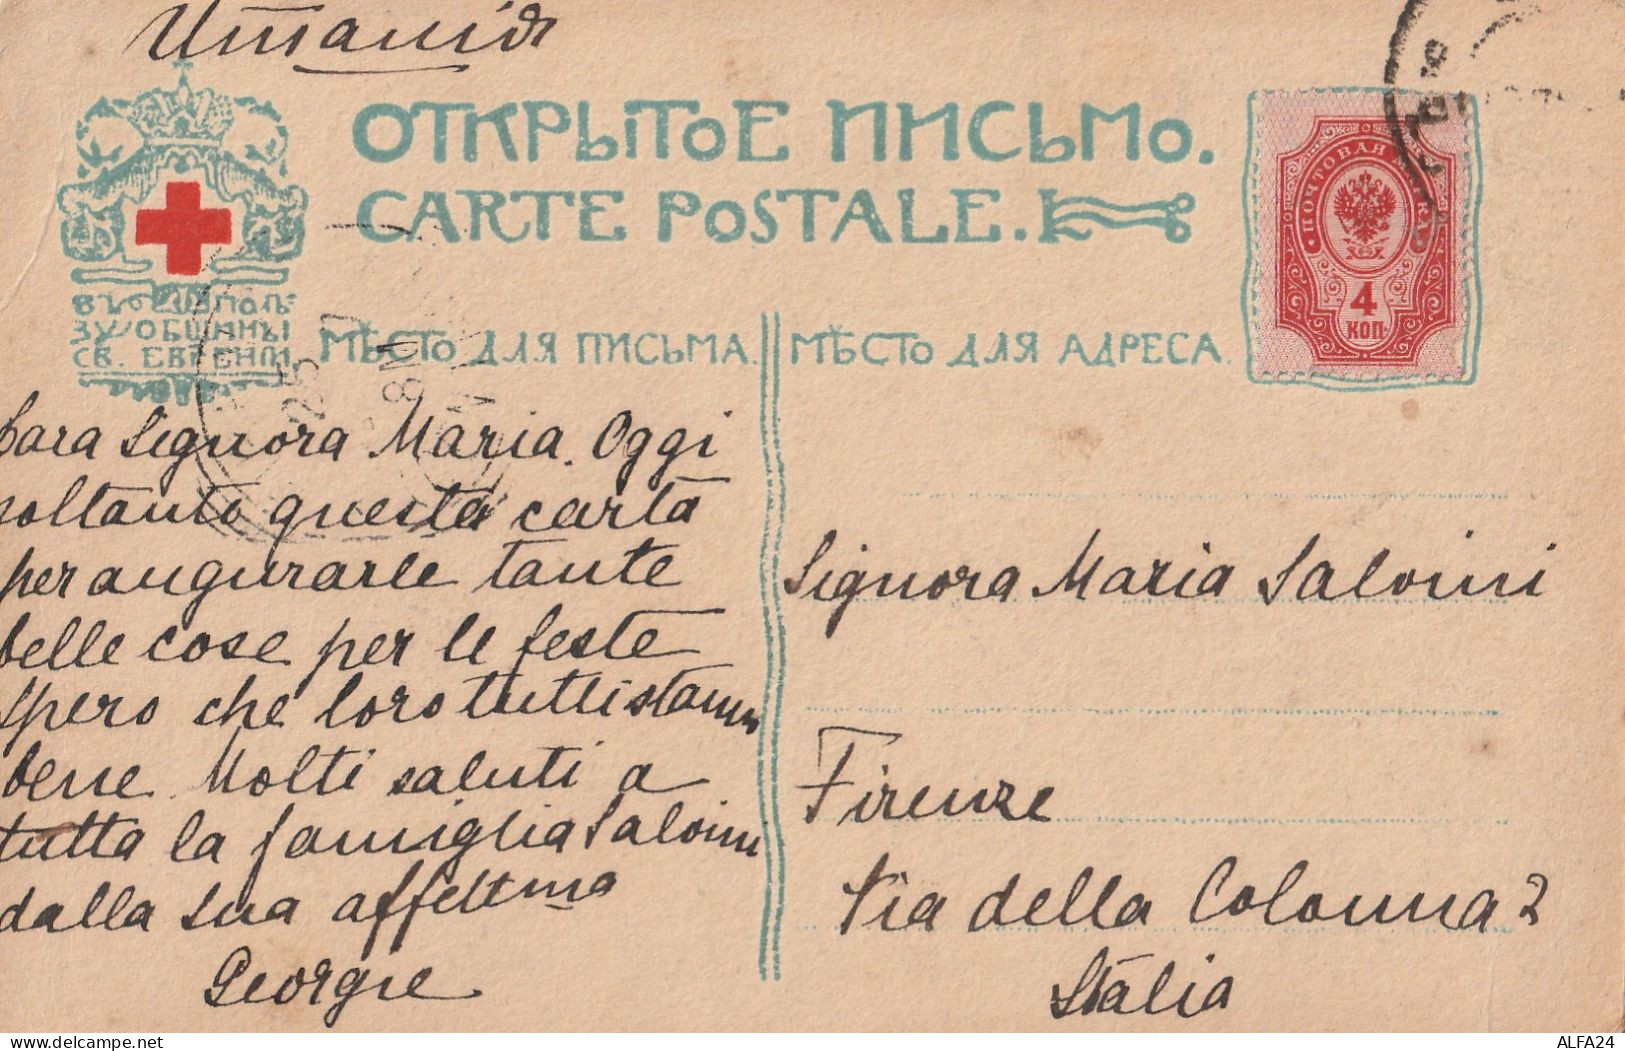 Италія
ОТКРЫТОЕ ПИСЬМО.
CARTE POSTALE.
ВЪ ПОЛЬ-
ЗУ ОБЩИНЫ
СВ. ЕВГЕНІИ
МѢСТО ДЛЯ ПИСЬМА.
МѢСТО ДЛЯ АДРЕСА.
ПОЧТОВАЯ МАРКА
4
КОП.
Cara Signora Maria. Oggi
soltanto questa carta
per augurarle tante
belle cose per le feste
Spero che loro tutti stanno
bene. Molti saluti a
tutta la famiglia Salvini
dalla sua affettma
Georgie
Signora Maria Salvini
Firenze
Via della Colonna 2
Italia
ALFA24